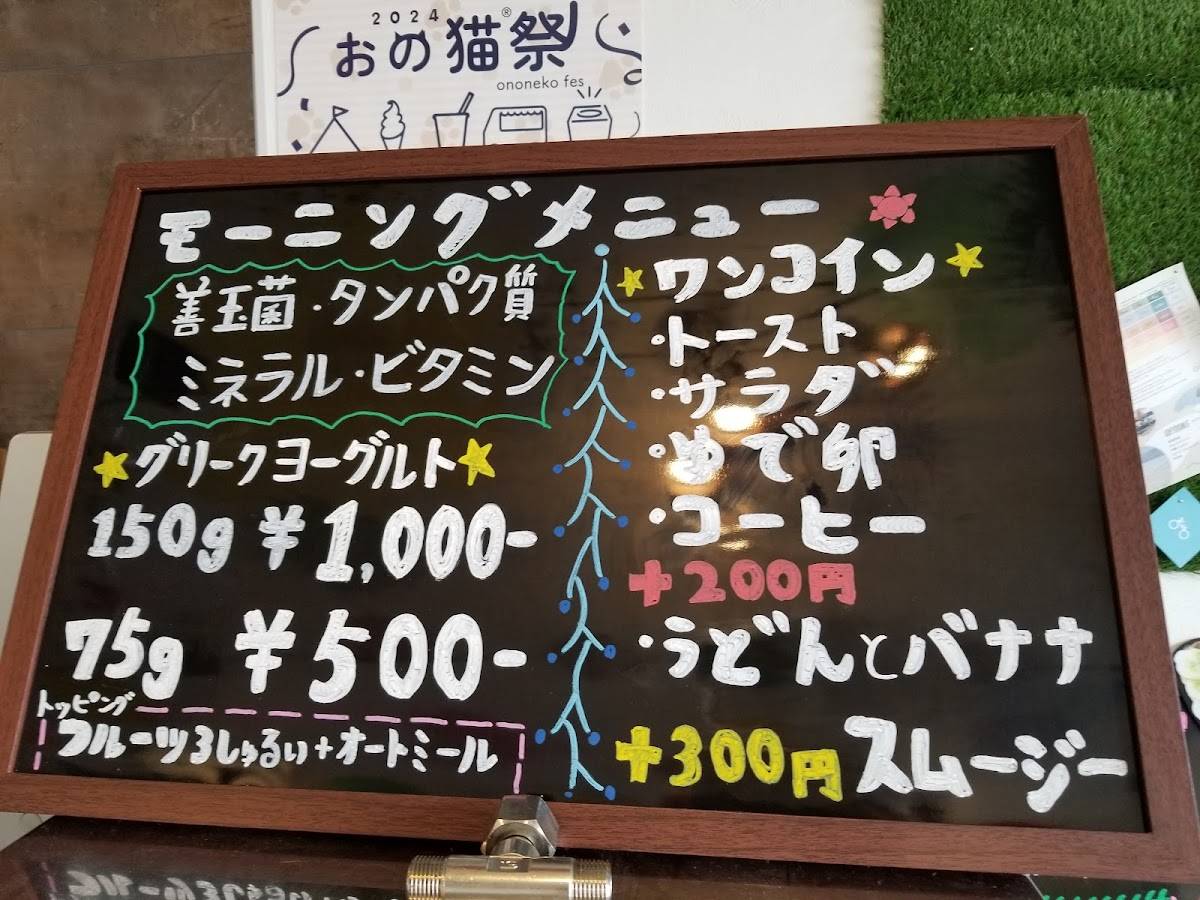 2024
おの猫祭®
ononeko fes
モーニングメニュー
善玉菌・タンパク質
ミネラル・ビタミン
グリークヨーグルト
150g ¥1,000-
75g ¥500-
トッピング
フルーツ3しゅるい+オートミール
ワンコイン
・トースト
・サラダ
・ゆで卵
・コーヒー
+200円
・うどんとバナナ
+300円 スムージー